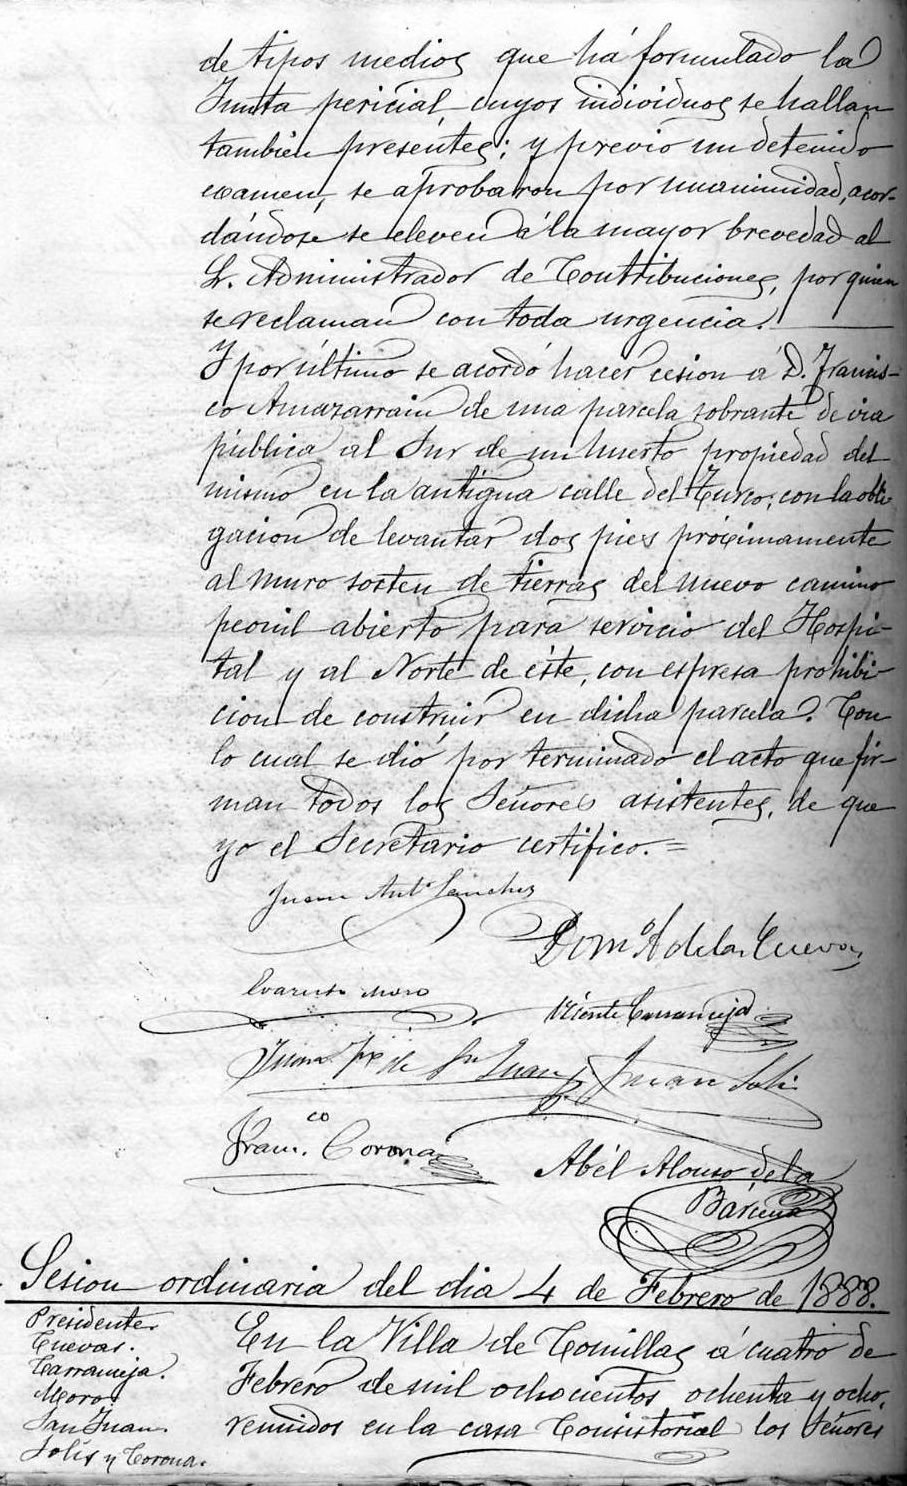 de tipos medios que há formulado la
Junta pericial, cuyos individuos se hallan
tambien presentes; y previo un detenido
examen, se aprobaron por unanimidad, acor-
dándose se eleven á la mayor brevedad al
Sr. Administrador de Contribuciones, por quien
se reclaman con toda urgencia.
Y por último se acordó hacer cesion á D. Francis-
co Amazarrain de una parcela sobrante de via
pública al Sur de un huerto propiedad del
mismo en la antigua calle del Turco; con la obli-
gacion de levantar dos pies próximamente
al muro sosten de tierras del nuevo camino
peonil abierto para servicio del Hospi-
tal y al Norte de éste, con espresa prohibi-
cion de construir en dicha parcela. Con
lo cual se dió por terminado el acto que fir-
man todos los Señores asistentes, de que
yo el Secretario certifico. =
Juan Antº Sanchez
Domº A de las Cuevas
Evaristo Moro
Vicente Carranceja
Juan Fx de Sn Juan
Juan Solis
Fran.co Corona
Abél Alonso de la
Bárcena
Sesion ordinaria del dia 4 de Febrero de 1888.
Presidente
Cuevas.
Carranceja.
Moro
San Juan
Solís y Corona.
En la Villa de Comillas á cuatro de
Febrero de mil ochocientos ochenta y ocho,
reunidos en la casa Consistorial los Señores